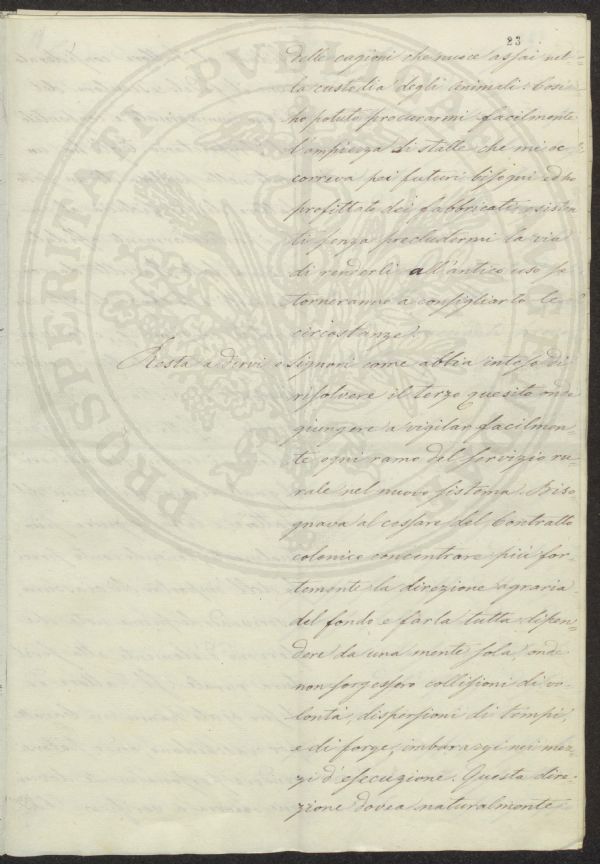 23
delle cagioni che nuoce assai nel-
la custodia degli animali. Così
ho potuto procurarmi facilmente
l'ampiezza di stalle che mi oc-
correva pei futuri bisogni ed ho
profittato dei fabbricati esisten
ti senza precludermi la via
di renderli all'antico uso se
torneranno a consigliarlo le
circostanze.
Resta a dirvi o Signori come abbia inteso di
risolvere il terzo quesito onde
giungere a vigilar facilmen-
te ogni ramo del servizio ru-
rale nel nuovo sistema. Biso
gnava al cessare del Contratto
colonico concentrare più for-
temente la direzione agraria
del fondo e farla tutta dipen-
dere da una mente sola, onde
non sorgessero collisioni di vo-
lontà, dispersioni di tempi,
e di forze, imbarazzi nei mez-
zi d'esecuzione. Questa dire-
zione dovea naturalmente
PROSPERITATI PUBLICAE